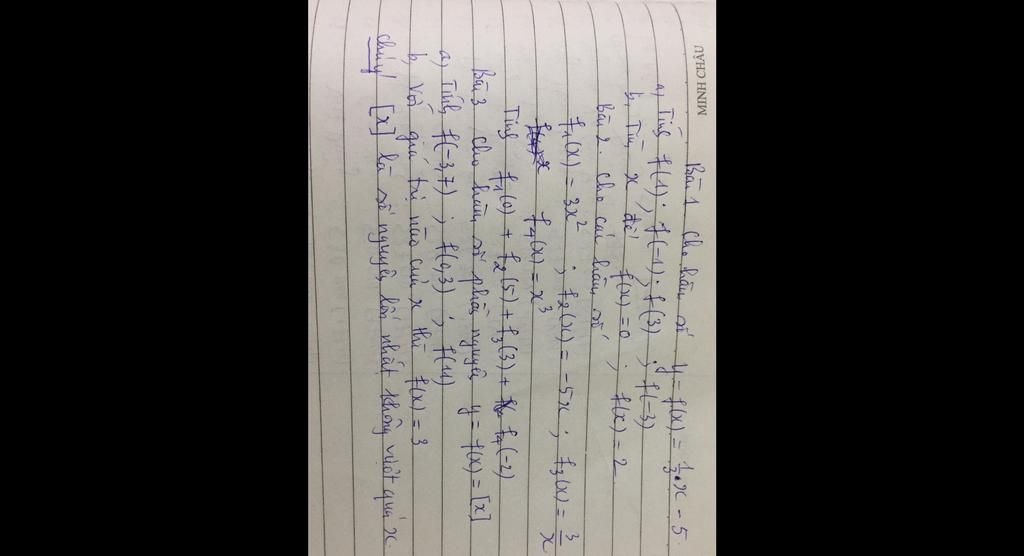 MINH CHÂU
Bài 1 Cho hàm số y = f(x) = 1/3 . x - 5.
a) Tính f(1) ; f(-1) ; f(3) ; f(-3)
b, Tìm x để f(x) = 0 ; f(x) = 2
Bài 2. Cho các hàm số
f₁(x) = 3x² ; f₂(x) = -5x ; f₃(x) = 3/x
f₄(x) = x³
Tính f₁(0) + f₂(5) + f₃(3) + f₄(-2)
Bài 3 Cho hàm số phần nguyên y = f(x) = [x]
a) Tính f(-3,7) ; f(0,3) ; f(11)
b, Với giá trị nào của x thì f(x) = 3
Chú ý! [x] là số nguyên lớn nhất không vượt quá x.